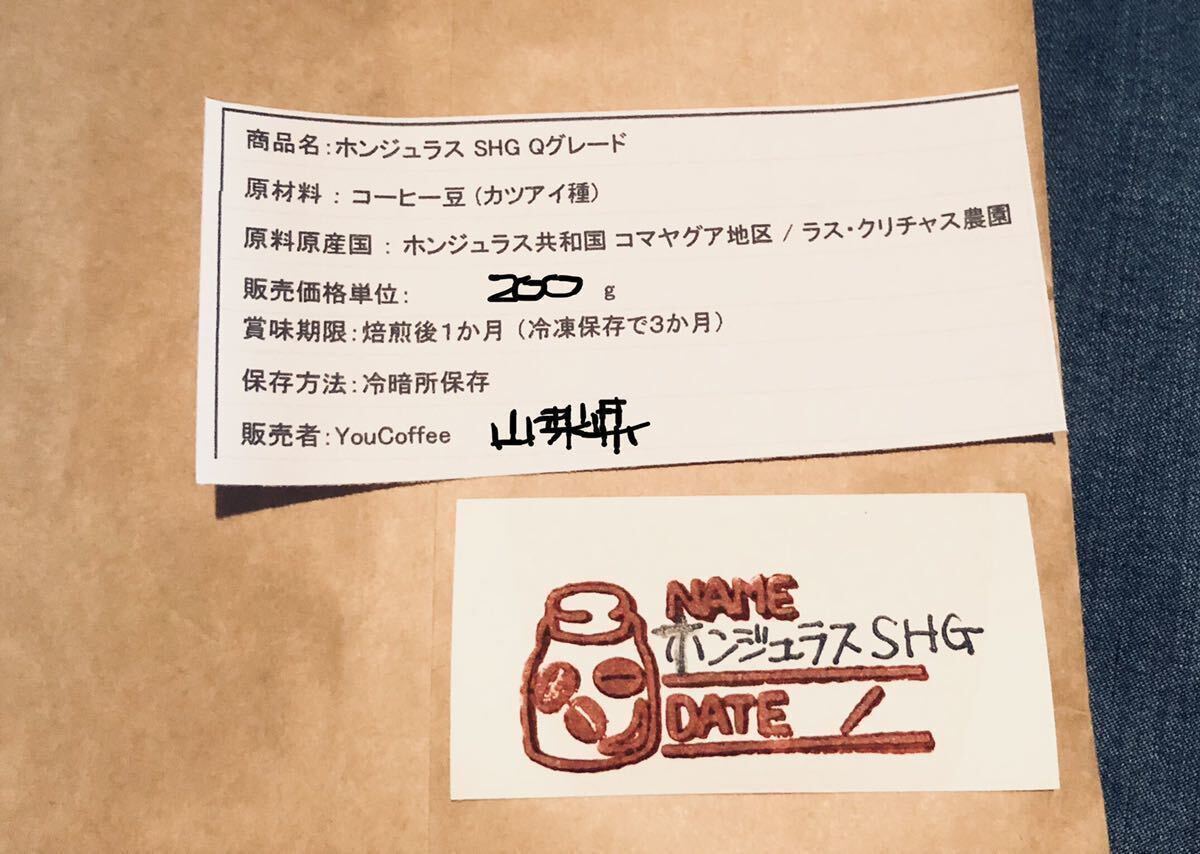 商品名:ホンジュラス SHG Qグレード
原材料 : コーヒー豆 (カツアイ種)
原料原産国 : ホンジュラス共和国 コマヤグア地区 / ラス・クリチャス農園
販売価格単位: 200 g
賞味期限:焙煎後1か月 (冷凍保存で3か月)
保存方法:冷暗所保存
販売者:YouCoffee
NAME
ホンジュラスSHG
DATE /